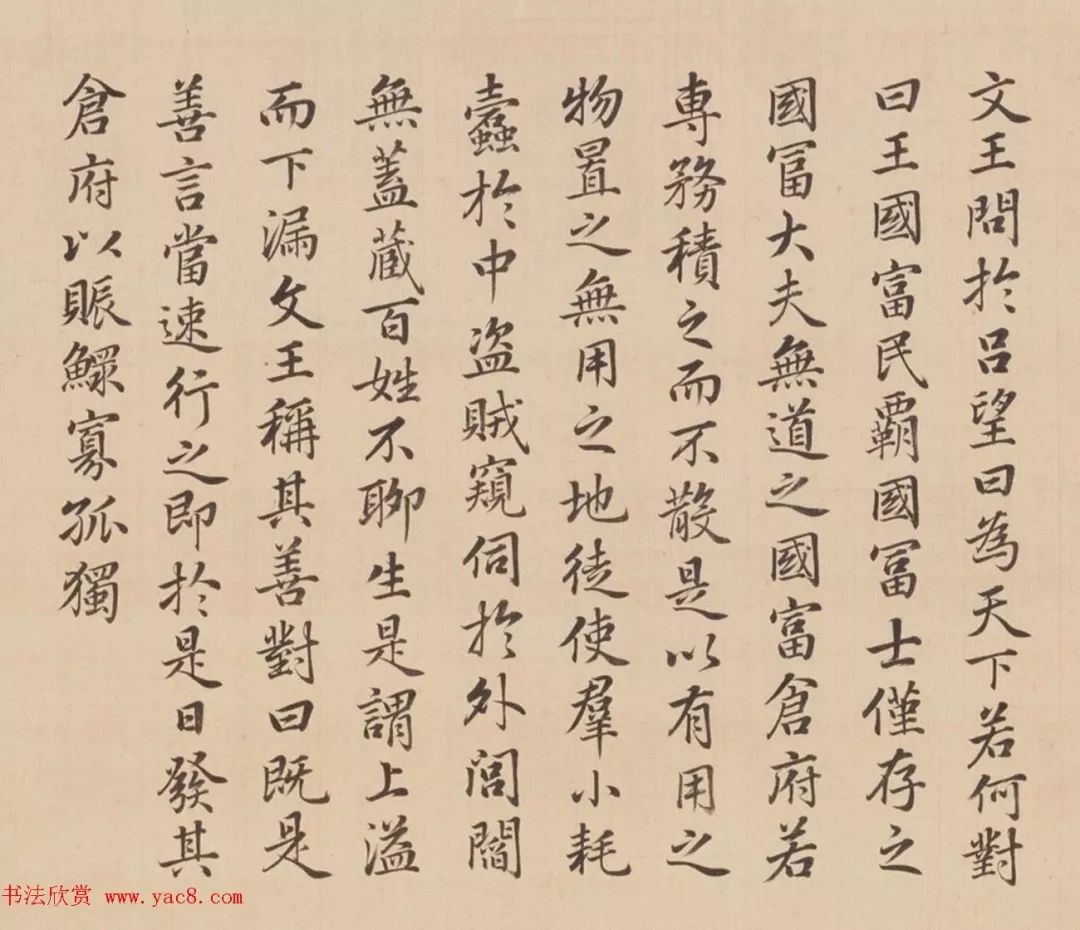 文王問於呂望曰為天下若何對
曰王國富民霸國冨士僅存之
國冨大夫無道之國富倉府若
專務積之而不散是以有用之
物置之無用之地徒使羣小耗
蠹於中盜賊窺伺於外閭閻
無蓋藏百姓不聊生是謂上溢
而下漏文王稱其善對曰既是
善言當速行之即於是日發其
倉府以賑鰥寡孤獨
书法欣赏 www.yac8.com